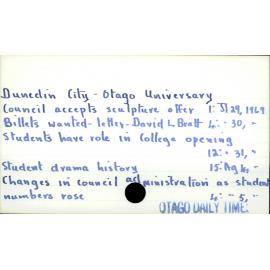 Dunedin City - Otago Universary
Council accepts sculpture offer 1: Jl 29, 1969
Billets wanted - letter - David L Bratt 4: " 30, "
Students have role in College opening
12: " 31, "
Student drama history 15: Ag 4, "
Changes in council administration as student
numbers rose 4: " 5, "
OTAGO DAILY TIME